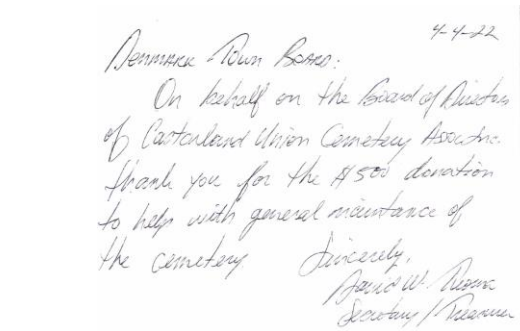 4-4-22
Denmark Town Board:
On behalf on the Board of Directors
of Castorland Union Cemetery Assoc Inc.
thank you for the $500 donation
to help with general maintance of
the cemetery Sincerely,
David W.
Secretary/Treasurer